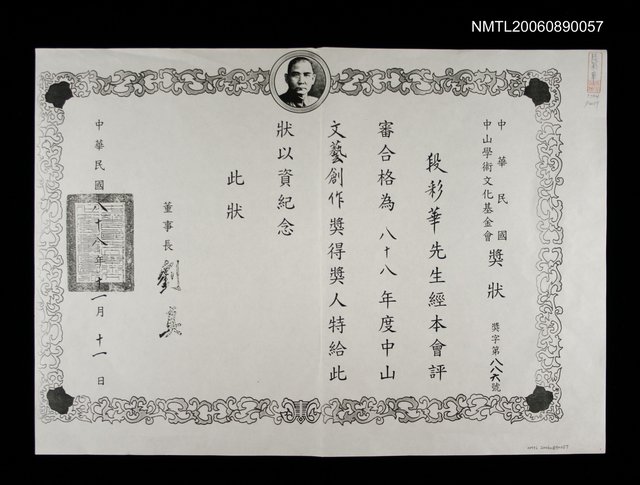 NMTL20060890057
中華民國
中山學術文化基金會
獎狀
獎字第八八六號
段彩華先生經本會評
審合格為八十八年度中山
文藝創作獎得獎人特給此
狀以資紀念
此狀
董事長 劉真
中華民國八十八年十一月十一日
NMTL 20060890057